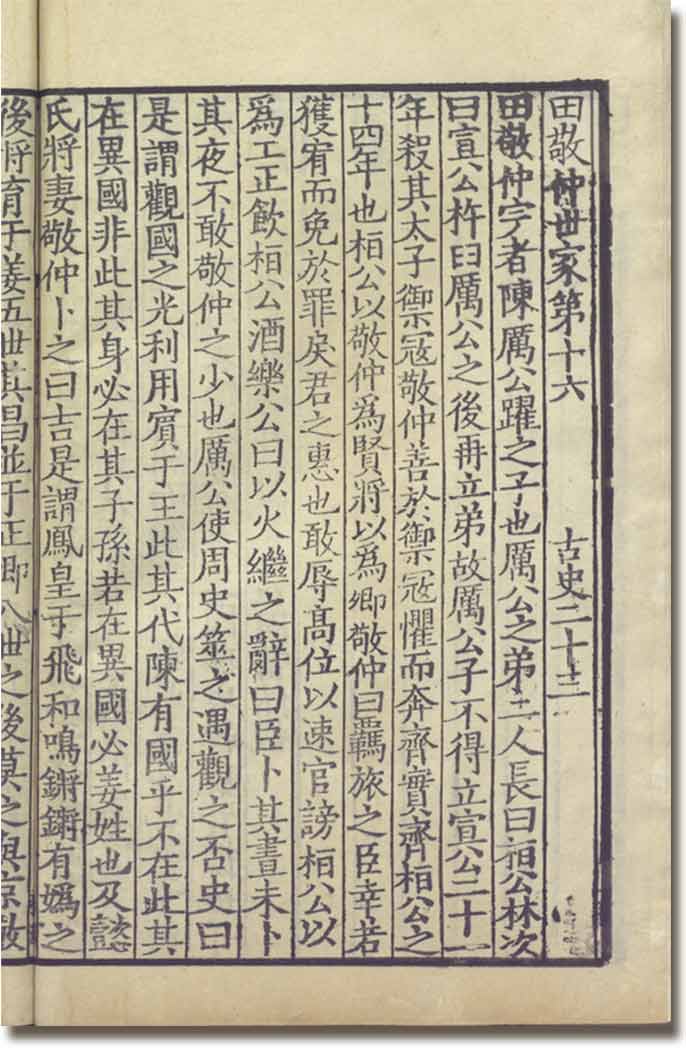 田敬仲世家第十六 古史二十三
田敬仲完者陳厲公躍之子也厲公之弟二人長曰桓公林次
曰宣公杵臼厲公之後再立弟故厲公子不得立宣公二十一
年殺其太子禦寇敬仲善於禦寇懼而奔齊實齊桓公之
十四年也桓公以敬仲爲賢將以爲卿敬仲曰羈旅之臣幸若
獲宥而免於罪戾君之惠也敢辱髙位以速官謗桓公以
爲工正飲桓公酒樂公曰以火繼之辭曰臣卜其晝未卜
其夜不敢敬仲之少也厲公使周史筮之遇觀之否史曰
是謂觀國之光利用賓于王此其代陳有國乎不在此其
在異國非此其身必在其子孫若在異國必姜姓也及懿
氏將妻敬仲卜之曰吉是謂鳳皇于飛和鳴鏘鏘有嬀之
後將育于姜五世其昌並于正卿八世之後莫之與京敬